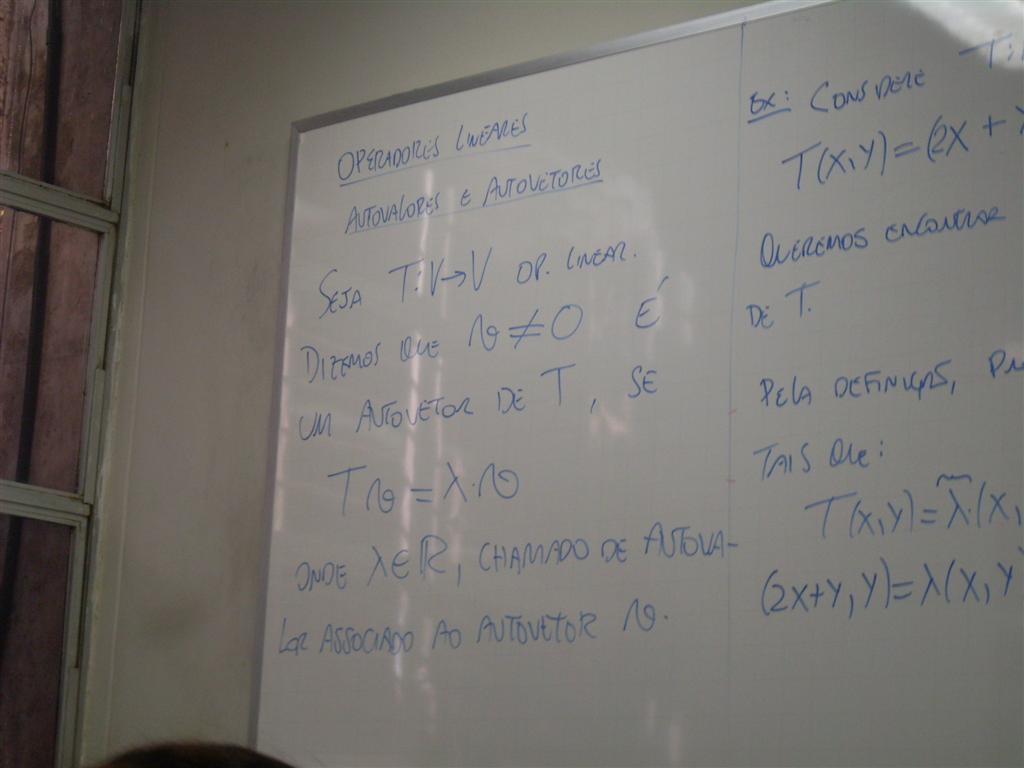 OPERADORES LINEARES
AUTOVALORES E AUTOVETORES
SEJA T:V→V OP. LINEAR.
DIZEMOS QUE v ≠ 0 É
UM AUTOVETOR DE T, SE
Tv = λ.v
ONDE λ∈ℝ, CHAMADO DE AUTOVA-
LOR ASSOCIADO AO AUTOVETOR v.
EX: CONSIDERE T:
T(X,Y)=(2X+Y
QUEREMOS ENCONTRAR
DE T.
PELA DEFINIÇÃO,
TAIS QUE:
T(X,Y)=λ.(X,
(2X+Y,Y)=λ(X,Y)